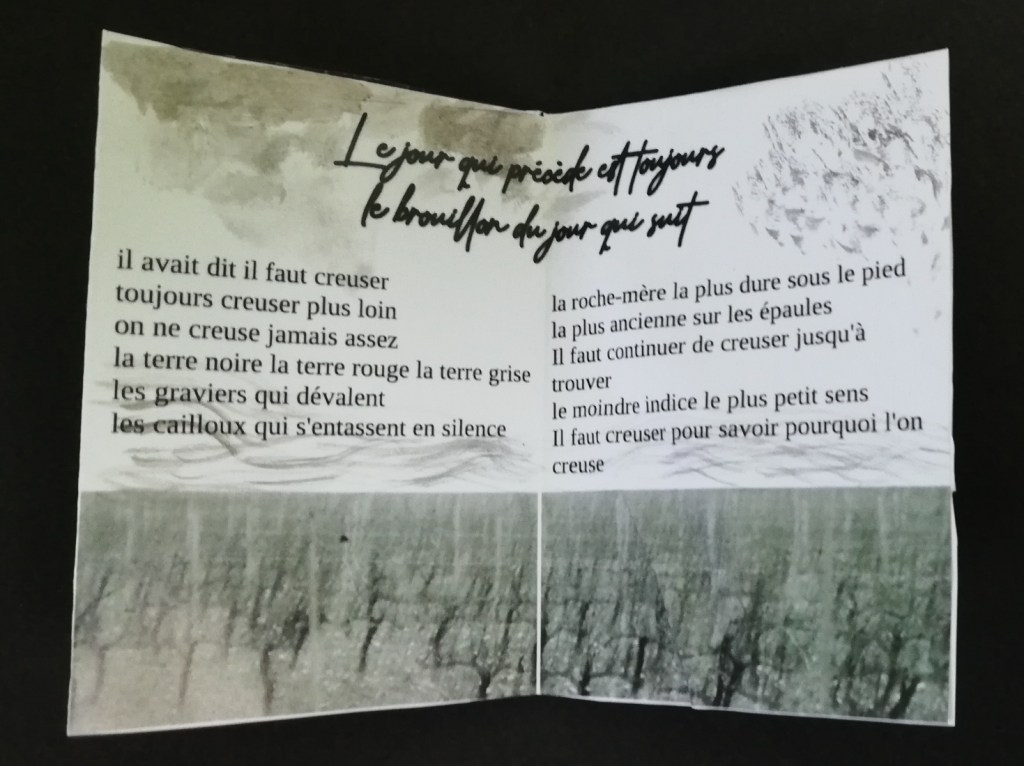 Le jour qui précède est toujours
le brouillon du jour qui suit
il avait dit il faut creuser
toujours creuser plus loin
on ne creuse jamais assez
la terre noire la terre rouge la terre grise
les graviers qui dévalent
les cailloux qui s'entassent en silence
la roche-mère la plus dure sous le pied
la plus ancienne sur les épaules
Il faut continuer de creuser jusqu'à
trouver
le moindre indice le plus petit sens
Il faut creuser pour savoir pourquoi l'on
creuse